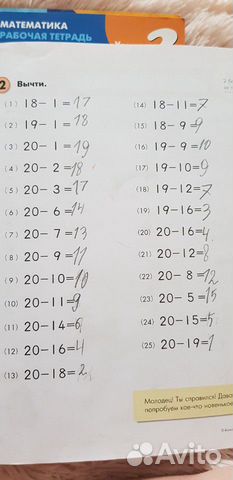 МАТЕМАТИКА
РАБОЧАЯ ТЕТРАДЬ
2 Вычти.
(1) 18-1=17
(2) 19-1=18
(3) 20-1=19
(4) 20-2=18
(5) 20-3=17
(6) 20-6=14
(7) 20-7=13
(8) 20-9=11
(9) 20-10=10
(10) 20-11=9
(11) 20-14=6
(12) 20-16=4
(13) 20-18=2
(14) 18-11=7
(15) 18-9=9
(16) 19-9=10
(17) 19-10=9
(18) 19-12=7
(19) 19-16=3
(20) 20-16=4
(21) 20-12=8
(22) 20-8=12
(23) 20-5=15
(24) 20-15=5
(25) 20-19=1
Молодец! Ты справился! Дава
попробуем кое-что новенькое
Avito